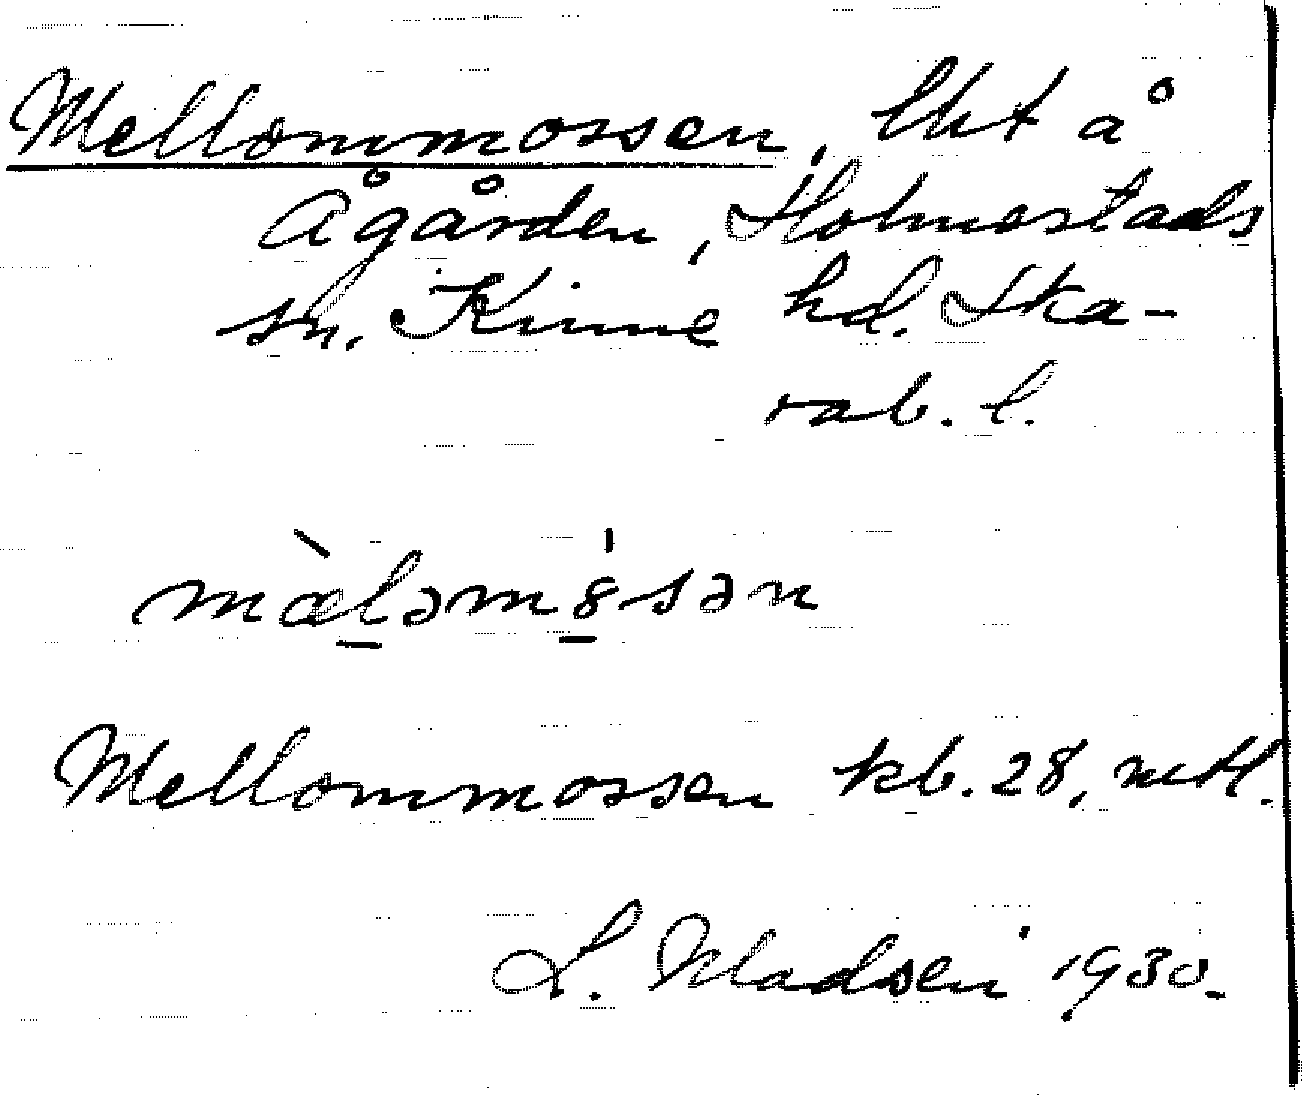 Mellommossen, lht å
Ågården, Holmestads
sn. Kinne hd. Ska-
rab. l.
mæ̀ləmo̍sən
Mellommossen kb. 28,
L. Madsen 1930.